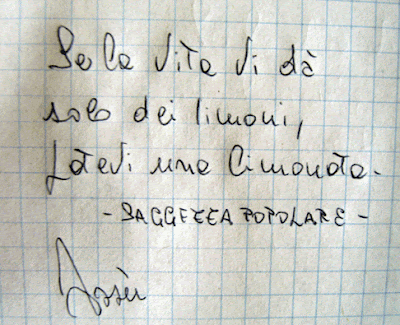 Se la vita vi dà
solo dei limoni,
fatevi una limonata.
- SAGGEZZA POPOLARE -